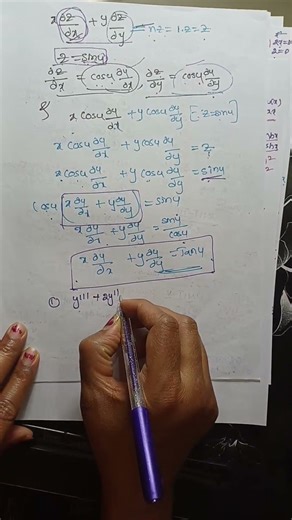 x ∂z/∂x + y ∂z/∂y = nz = 1.z = z
z = sinu
∂z/∂x = cosu ∂u/∂x ∂z/∂y = cosu ∂u/∂y
x cosu ∂u/∂x + y cosu ∂u/∂y [∵ z = sinu]
x cosu ∂u/∂x + y cosu ∂u/∂y = z
x cosu ∂u/∂x + y cosu ∂u/∂y = sinu
cosu [x ∂u/∂x + y ∂u/∂y] = sinu
x ∂u/∂x + y ∂u/∂y = sinu/cosu
x ∂u/∂x + y ∂u/∂y = Tanu
① y''' + 2y''